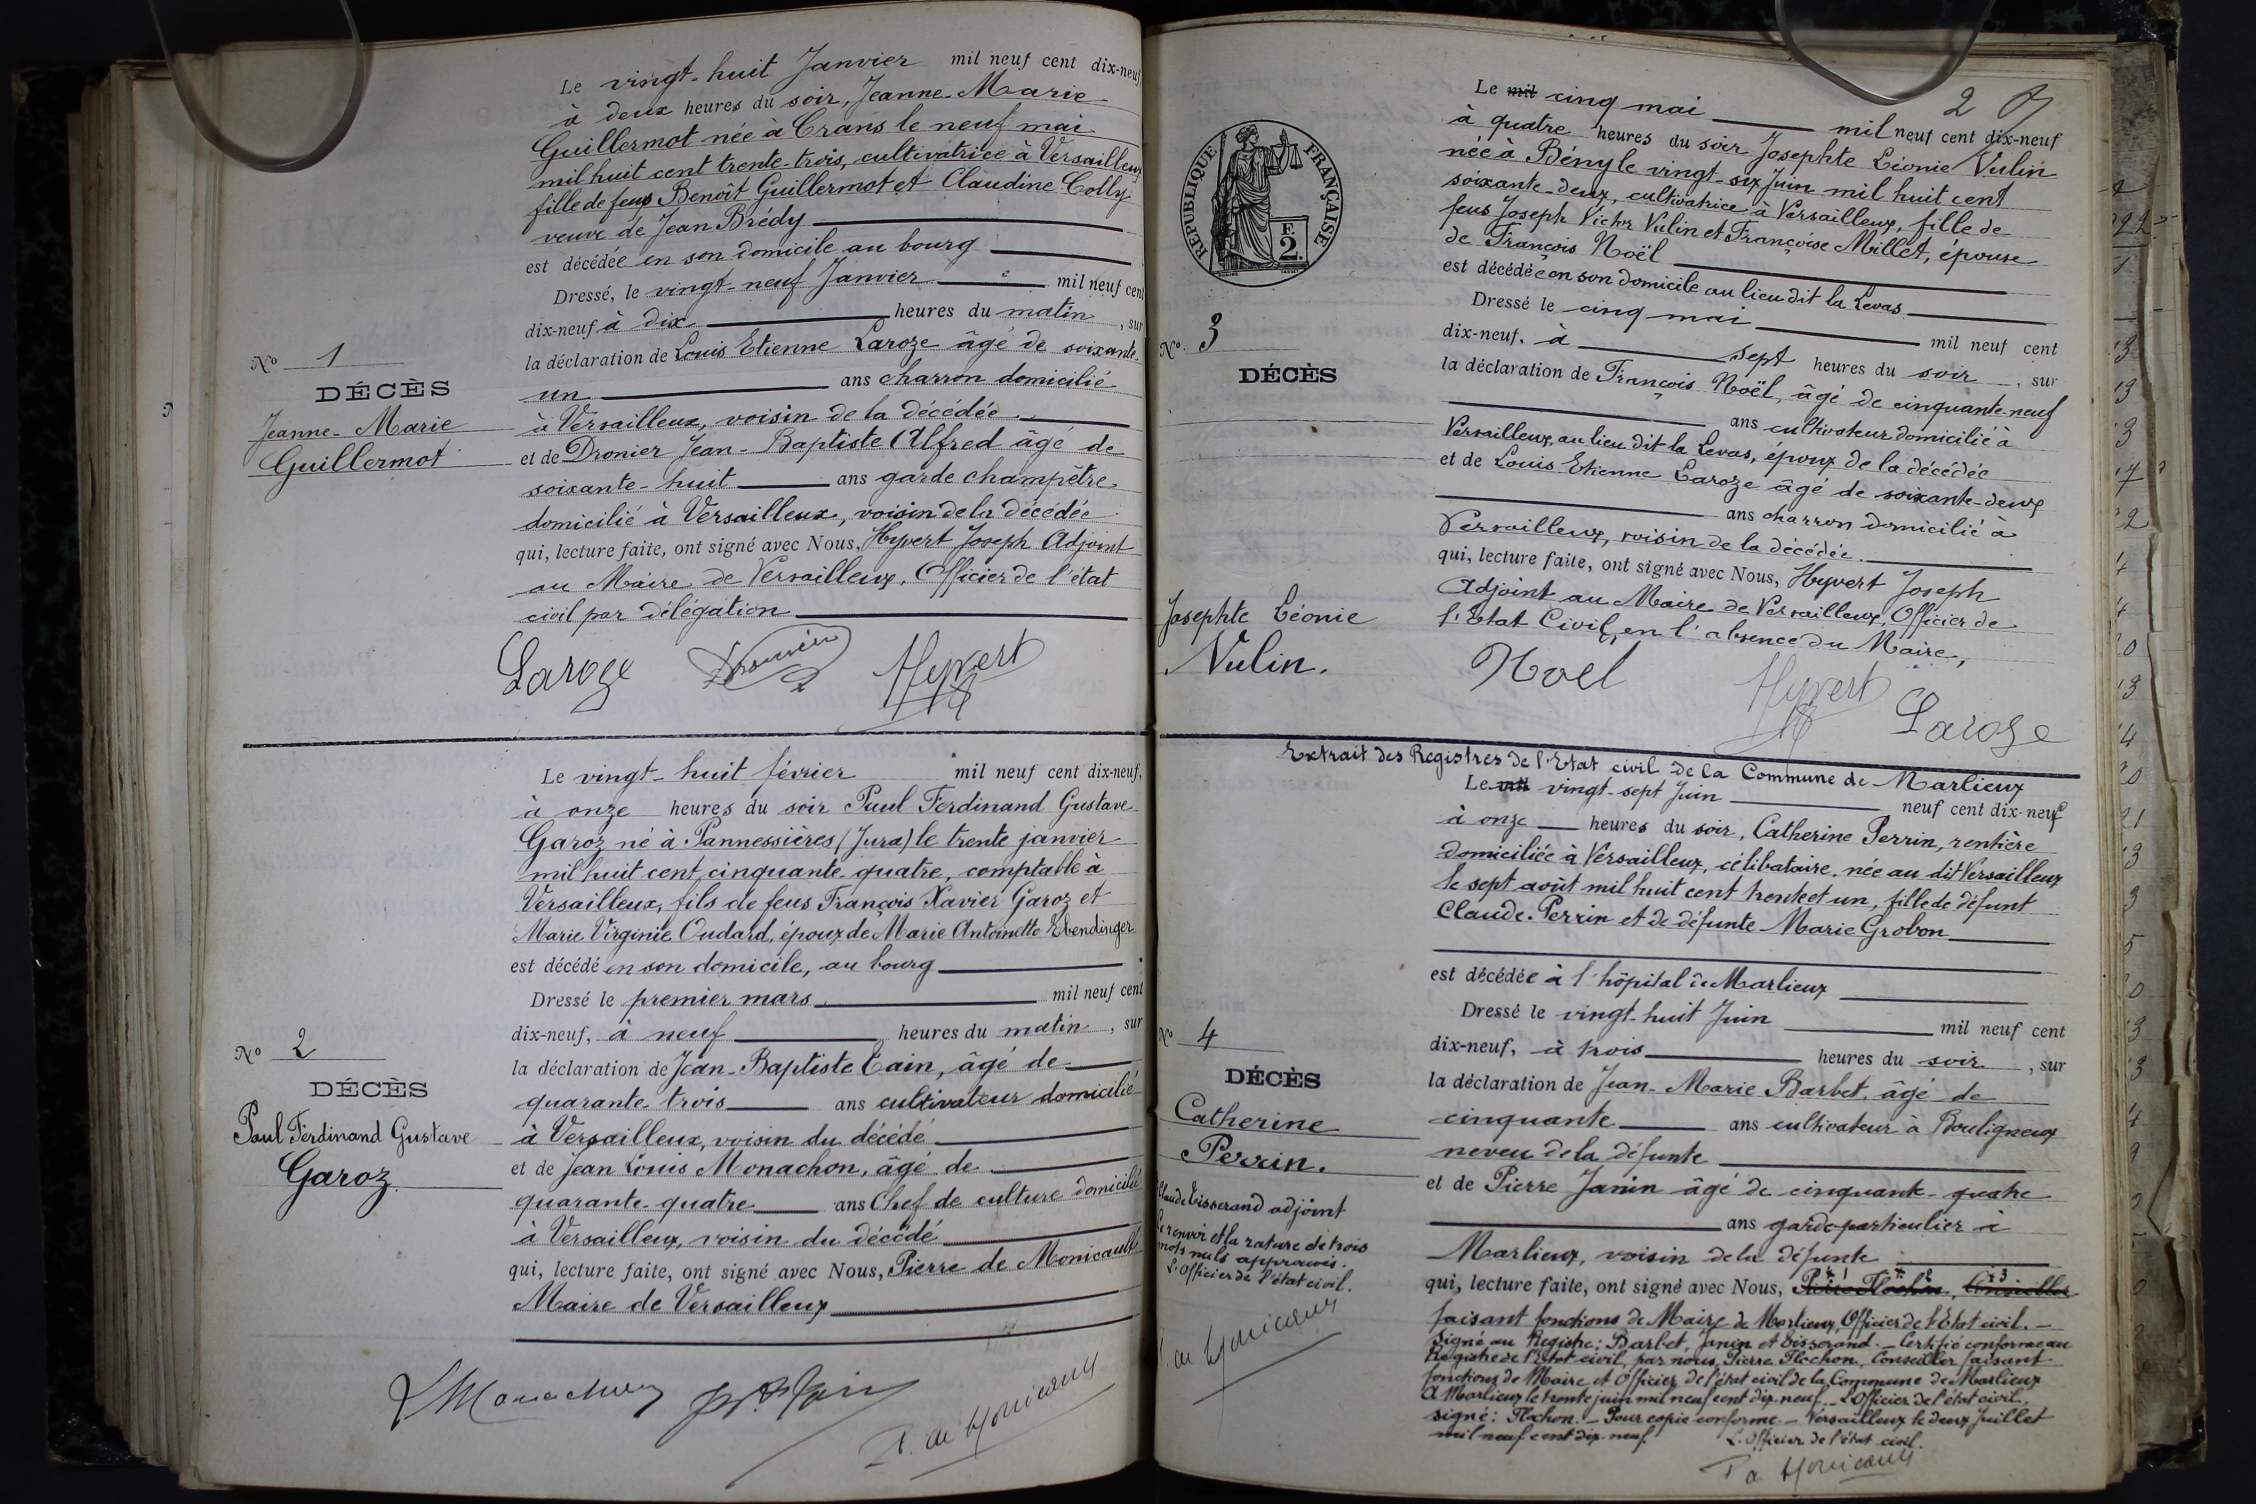 Le vingt-huit Janvier mil neuf cent dix-neuf
à deux heures du soir, Jeanne-Marie
Guillermot née à Crans le neuf mai
mil huit cent trente-trois, cultivatrice à Versailleux
fille de feus Benoît Guillermot et Claudine Colly
veuve de Jean Brédy
est décédée en son domicile au bourg
Dressé, le vingt-neuf Janvier mil neuf cent
dix-neuf à dix heures du matin, sur
la déclaration de Louis Etienne Laroze âgé de soixante-
un ans charron domicilié
à Versailleux, voisin de la décédée
et de Dronier Jean-Baptiste Alfred âgé de
soixante-huit ans garde champêtre
domicilié à Versailleux, voisin de la décédée
qui, lecture faite, ont signé avec Nous, Hyvert Joseph Adjoint
au Maire de Versailleux, Officier de l'état
civil par délégation
Laroze Hyvert
No 1
DÉCÈS
Jeanne-Marie
Guillermot
Le vingt-huit février mil neuf cent dix-neuf,
à onze heures du soir Paul Ferdinand Gustave
Garoz né à Pannessières (Jura) le trente janvier
mil huit cent cinquante-quatre, comptable à
Versailleux, fils de feus François Xavier Garoz et
Marie Virginie Oudard, époux de Marie Antoinette Ebendinger
est décédé en son domicile, au bourg
Dressé le premier mars mil neuf cent
dix-neuf, à neuf heures du matin, sur
la déclaration de Jean-Baptiste Tain, âgé de
quarante-trois ans cultivateur domicilié
à Versailleux, voisin du décédé
et de Jean Louis Monachon, âgé de
quarante-quatre ans Chef de culture domicilié
à Versailleux, voisin du décédé
qui, lecture faite, ont signé avec Nous, Pierre de Monicault
Maire de Versailleux
P. de Monicault
No 2
DÉCÈS
Paul Ferdinand Gustave
Garoz
2
Le mil cinq mai mil neuf cent dix-neuf
à quatre heures du soir Josephte Léonie Vulin
née à Bény le vingt-six Juin mil huit cent
soixante-deux, cultivatrice à Versailleux, fille de
feus Joseph Victor Vulin et Françoise Millet, épouse
de François Noël
est décédée en son domicile au lieu dit la Levas
Dressé le cinq mai mil neuf cent
dix-neuf, à sept heures du soir, sur
la déclaration de François Noël, âgé de cinquante-neuf
ans cultivateur domicilié à
Versailleux, au lieu dit la Levas, époux de la décédée
et de Louis Etienne Laroze âgé de soixante-deux
ans charron domicilié à
Versailleux, voisin de la décédée
qui, lecture faite, ont signé avec Nous, Hyvert Joseph
Adjoint au Maire de Versailleux, Officier de
l'Etat Civil, en l'absence du Maire,
Noel Hyvert Laroze
RÉPUBLIQUE FRANÇAISE
F.
2.
No 3
DÉCÈS
Josephte Léonie
Vulin.
Extrait des Registres de l'Etat civil de la Commune de Marlieux
Le mil vingt-sept Juin neuf cent dix-neuf
à onze heures du soir, Catherine Perrin, rentière
domiciliée à Versailleux, célibataire, née au dit Versailleux
le sept août mil huit cent trente et un, fille de défunt
Claude Perrin et de défunte Marie Grobon
est décédée à l'hôpital de Marlieux
Dressé le vingt-huit Juin mil neuf cent
dix-neuf, à trois heures du soir, sur
la déclaration de Jean-Marie Barbet, âgé de
cinquante ans cultivateur à Bouligneux
neveu de la défunte
et de Pierre Janin âgé de cinquante-quatre
ans garde-particulier à
Marlieux, voisin de la défunte
qui, lecture faite, ont signé avec Nous, Pierre Flochon, Conseiller
faisant fonctions de Maire de Marlieux, Officier de l'Etat civil. -
Signé au Registre: Barbet, Janin et Tisserand. - Certifié conforme au
Registre de l'Etat civil, par nous, Pierre Flochon, Conseiller faisant
fonctions de Maire et Officier de l'état civil de la Commune de Marlieux
A Marlieux, le trente juin mil neuf cent dix neuf. - L'Officier de l'état civil,
signé: Flochon. - Pour copie conforme. - Versailleux le deux Juillet
mil neuf cent dix-neuf. L'Officier de l'état civil.
P. de Monicault
No 4
DÉCÈS
Catherine
Perrin.
Claude Tisserand adjoint
Le renvoi et la rature de trois
mots nuls approuvés.
L'Officier de l'état civil.
P. de Monicault